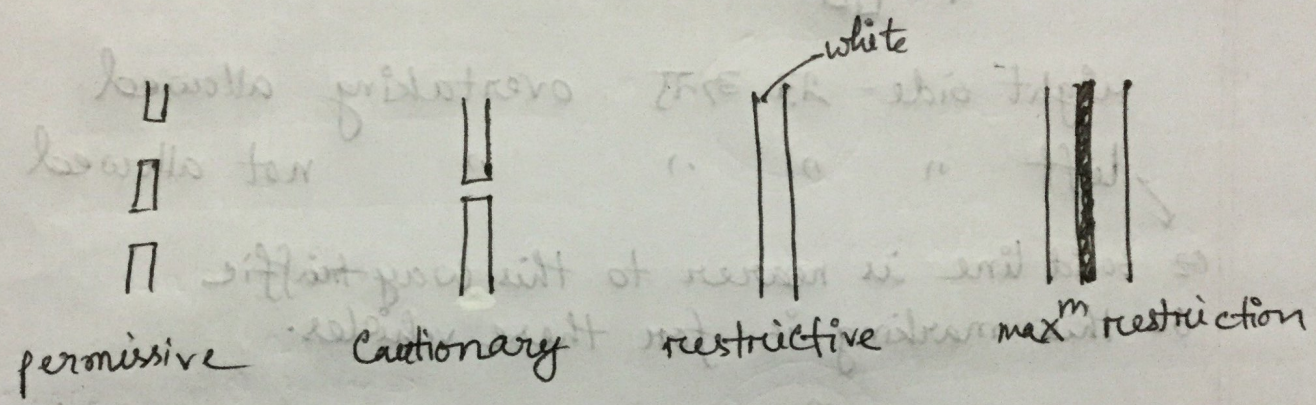 white
permissive
Cautionary
restrictive
maxᵐ restriction